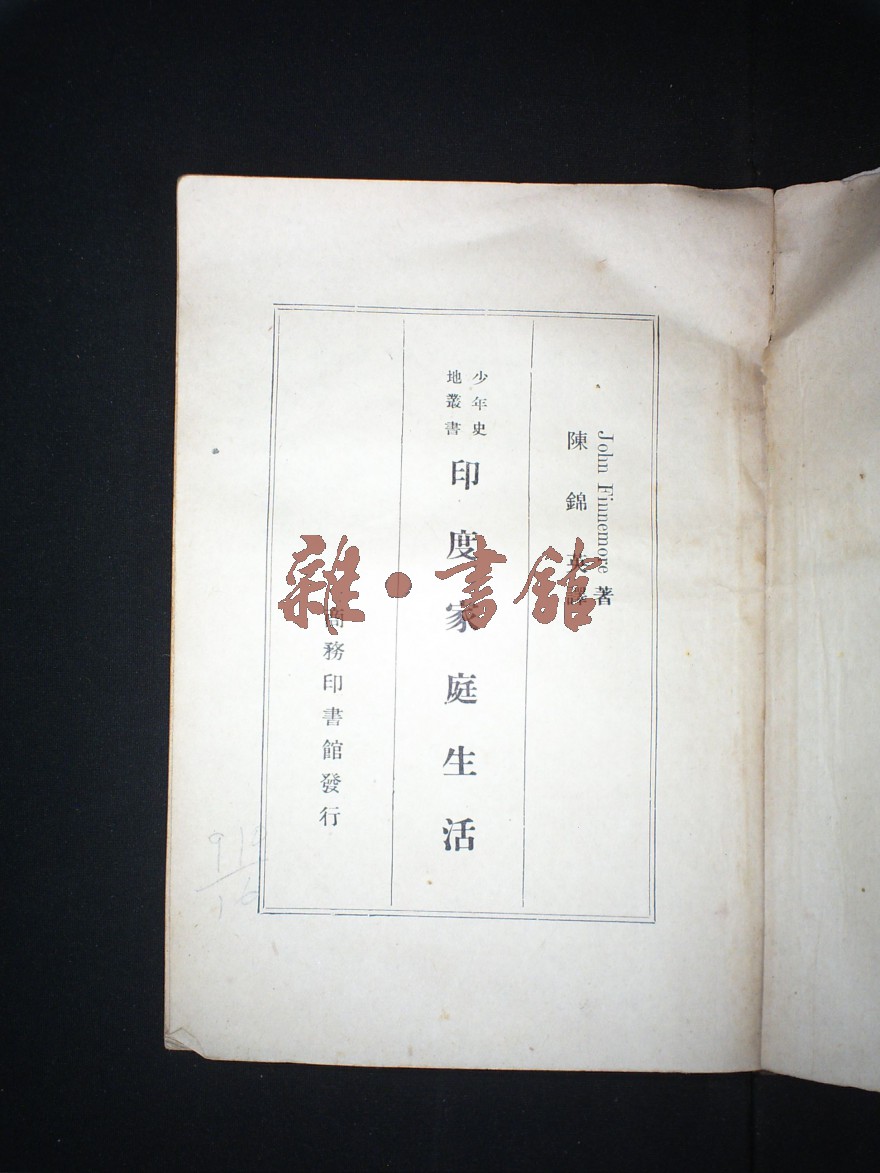 John Finnemore 著
陳錦英譯
少年史
地叢書
印度家庭生活
商務印書館發行
雜·書館